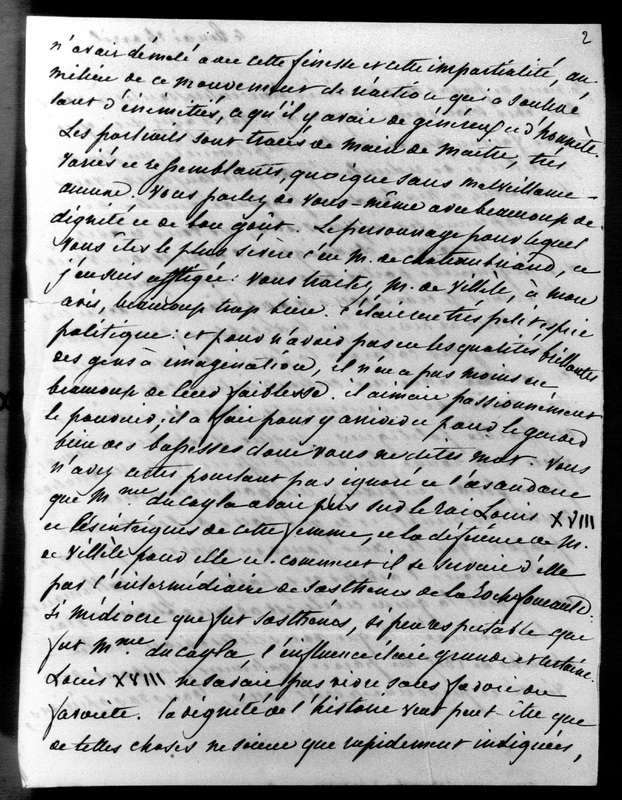 2
n'avait démêlé avec cette finesse et cette impartialité, au
milieu de ce mouvement de réaction qui a soulevé
tant d'inimitiés, ce qu'il y avait de généreux et d'honnête.
Les portraits sont tracés de main de maître, très
variés et ressemblants, quoique sans malveillance
aucune. Vous parlez de vous-même avec beaucoup de
dignité et de bon goût. Le personnage pour lequel
vous êtes le plus sévère c'est M. de Chateaubriand, et
j'en suis affligée: vous traitez M. de Villèle, à mon
avis, beaucoup trop bien. C'était un très petit esprit
politique: et pour n'avoir pas eu les qualités brillantes
des gens à imagination, il n'en a pas moins eu
beaucoup de leurs faiblesses. il aimait passionnément
le pouvoir, il a fait pour y arriver et pour le garder
bien des bassesses dont vous ne dites mot. Vous
n'avez certes pourtant pas ignoré et l'ascendant
que Mme du Cayla avait pris sur le roi Louis XVIII
et les intrigues de cette femme, et la déférence de M.
de Villèle pour elle et comment il se servait d'elle
par l'intermédiaire de Sosthènes de la Rochefoucauld:
si médiocre que fut Sosthènes, si peu respectable que
fut Mme du Cayla, l'influence était grande et certaine.
Louis XVIII ne savait pas vivre sans favori ou
favorite. la dignité de l'histoire veut peut-être que
de telles choses ne soient que rapidement indiquées,